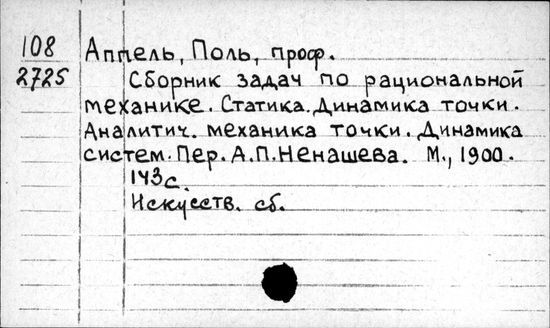 108
2725
Аппель, Поль, проф.
Сборник задач по рациональной
механике. Статика. Динамика точки.
Аналитич. механика точки. Динамика
систем. Пер. А.П. Ненашева. М., 1900.
143 с.
Искусств. сб.